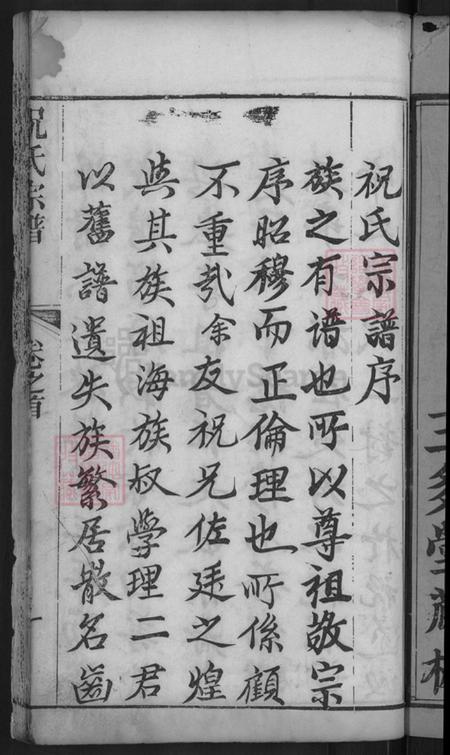 祝氏宗譜序
族之有谱也所以尊祖敬宗
序昭穆而正倫理也所係顧
不重㢤余友祝兄佐廷之煌
與其族祖海族叔學理二君
以舊譜遺失族繁居散名齒
祝氏宗譜
卷之首
一
三多堂藏板